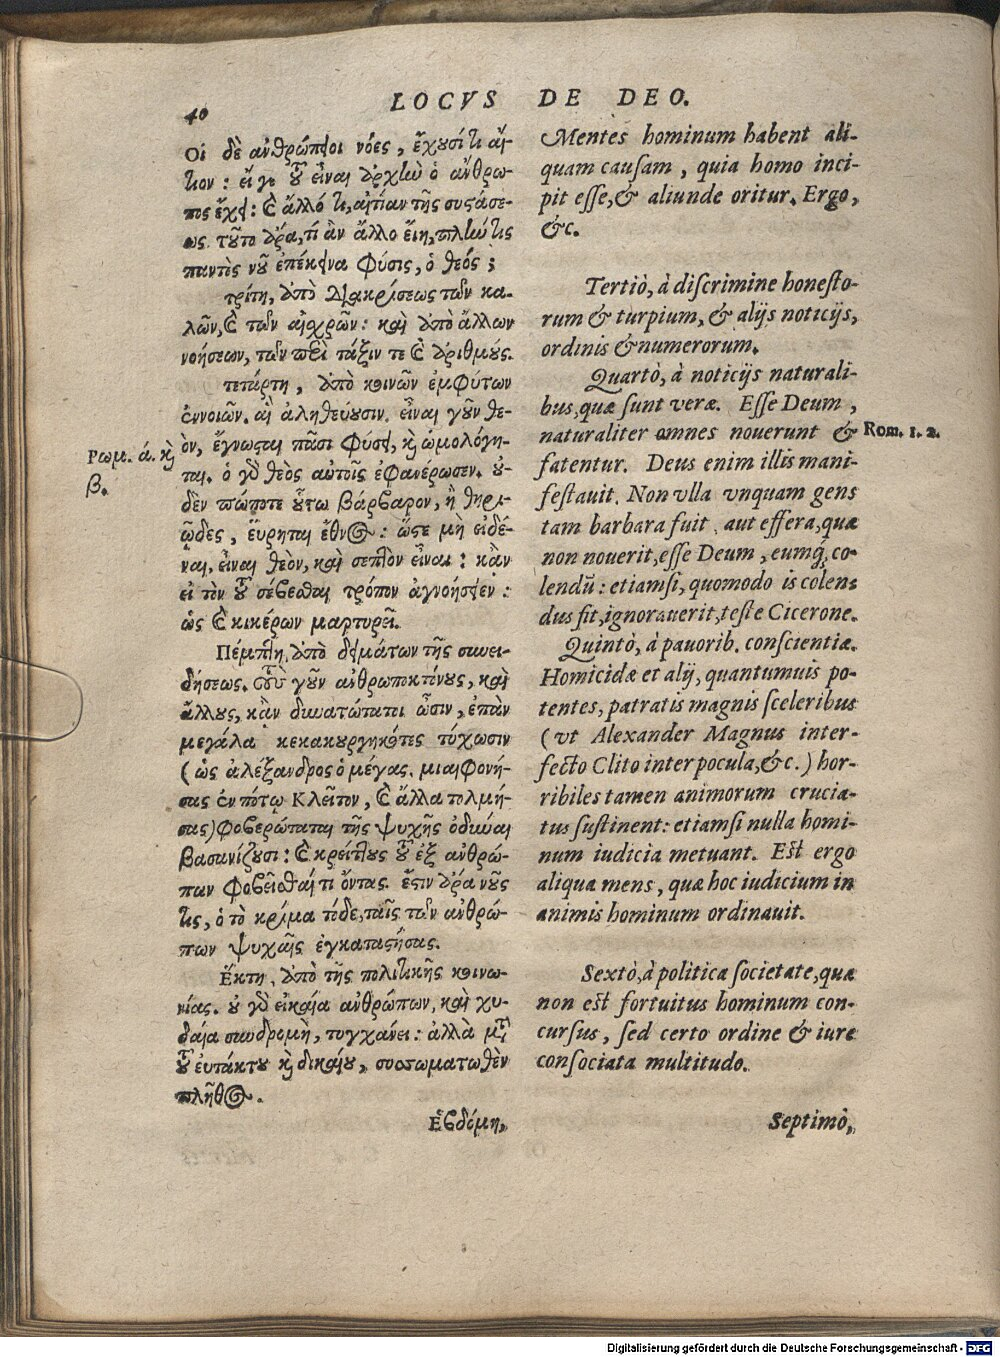 40
LOCVS DE DEO.
Οἱ δὲ ἀνθρώπινοι νόες, ἔχουσί τι αἴ-
τιον: εἴγε τοῦ εἶναι ἀρχὴν ὁ ἄνθρω-
πος ἔχει: καὶ ἄλλό τι, αἰτίαν τῆς συστάσε-
ως. τοῦτο ἄρα, τί ἂν ἄλλο εἴη, πλὴν τις
παντὸς νοῦ ἐπέκεινα φύσις, ὁ θεός;
τρίτη, ἀπὸ διακρίσεως τῶν κα-
λῶν, καὶ τῶν αἰχρῶν: καὶ ἀπὸ ἄλλων
νοήσεων, τῶν περὶ τάξιν τε καὶ ἀριθμούς.
τετάρτη, ἀπὸ κοινῶν ἐμφύτων
ἐννοιῶν. αἳ ἀληθεύουσιν. εἶναι γοῦν θε-
ὸν, ἔγνωσται πᾶσι φύσει, καὶ ὡμολόγη-
ται. ὁ γὰρ θεὸς αὐτοῖς ἐφανέρωσεν. οὐ-
δὲν πώποτε οὕτω βάρβαρον, ἢ θηρι-
ῶδες, εὕρηται ἔθνος: ὥστε μὴ εἰδέ-
ναι, εἶναι θεὸν, καὶ σεπτὸν εἶναι: κἂν
εἰ τὸν τοῦ σέβεσθαι τρόπον ἀγνοήσειεν:
ὡς καὶ κικέρων μαρτυρεῖ.
Πέμπτη, ἀπὸ δειμάτων τῆς συνει-
δήσεως. τοὺς γοῦν ἀνθρωποκτόνους, καὶ
ἄλλους, κἂν δυνατώτατοι ὦσιν, ἐπὰν
μεγάλα κεκακουργηκότες τύχωσιν
(ὡς ἀλέξανδρος ὁ μέγας. μιαιφονή-
σας ἐν πότῳ Κλεῖτον, καὶ ἄλλα τολμή-
σας) φοβερώταται τῆς ψυχῆς ὀδύναι
βασανίζουσι: καὶ κρείττους τοῦ ἐξ ἀνθρώ-
πων φοβεῖσθαί τι ὄντας. ἔστιν ἄρα νοῦς
τις, ὁ τὸ κρίμα τόδε, ταῖς τῶν ἀνθρώ-
πων ψυχαῖς ἐγκαταστήσας.
Ἕκτη, ἀπὸ τῆς πολιτικῆς κοινω-
νίας. οὐ γὰρ εἰκαία ἀνθρώπων, καὶ χυ-
δαία συνδρομὴ, τυγχάνει: ἀλλὰ μετὰ
τοῦ εὐτάκτου καὶ δικαίου, συσσωματωθὲν
πλῆθος.
Ἑβδόμη,
Ρωμ. ά. καὶ
β.
Mentes hominum habent ali-
quam causam, quia homo inci-
pit esse, & aliunde oritur. Ergo,
&c.
Tertiò, à discrimine honesto-
rum & turpium, & alijs noticijs,
ordinis & numerorum.
Quartò, à noticijs naturali-
bus, quæ sunt veræ. Esse Deum,
naturaliter omnes nouerunt &
fatentur. Deus enim illis mani-
festauit. Non vlla vnquam gens
tam barbara fuit, aut effera, quæ
non nouerit, esse Deum, eumq́, co-
lendū: etiamsi, quomodo is colen-
dus sit, ignorauerit, teste Cicerone.
Quintò, à pauorib. conscientiæ.
Homicidæ et alij, quantumuis po-
tentes, patratis magnis sceleribus
(vt Alexander Magnus inter-
fecto Clito inter pocula, &c.) hor-
ribiles tamen animorum crucia-
tus sustinent: etiamsi nulla homi-
num iudicia metuant. Est ergo
aliqua mens, quæ hoc iudicium in
animis hominum ordinauit.
Sextò, à politica societate, quæ
non est fortuitus hominum con-
cursus, sed certo ordine & iure
consociata multitudo.
Septimò,
Rom. 1. 2.
Digitalisierung gefördert durch die Deutsche Forschungsgemeinschaft - DFG